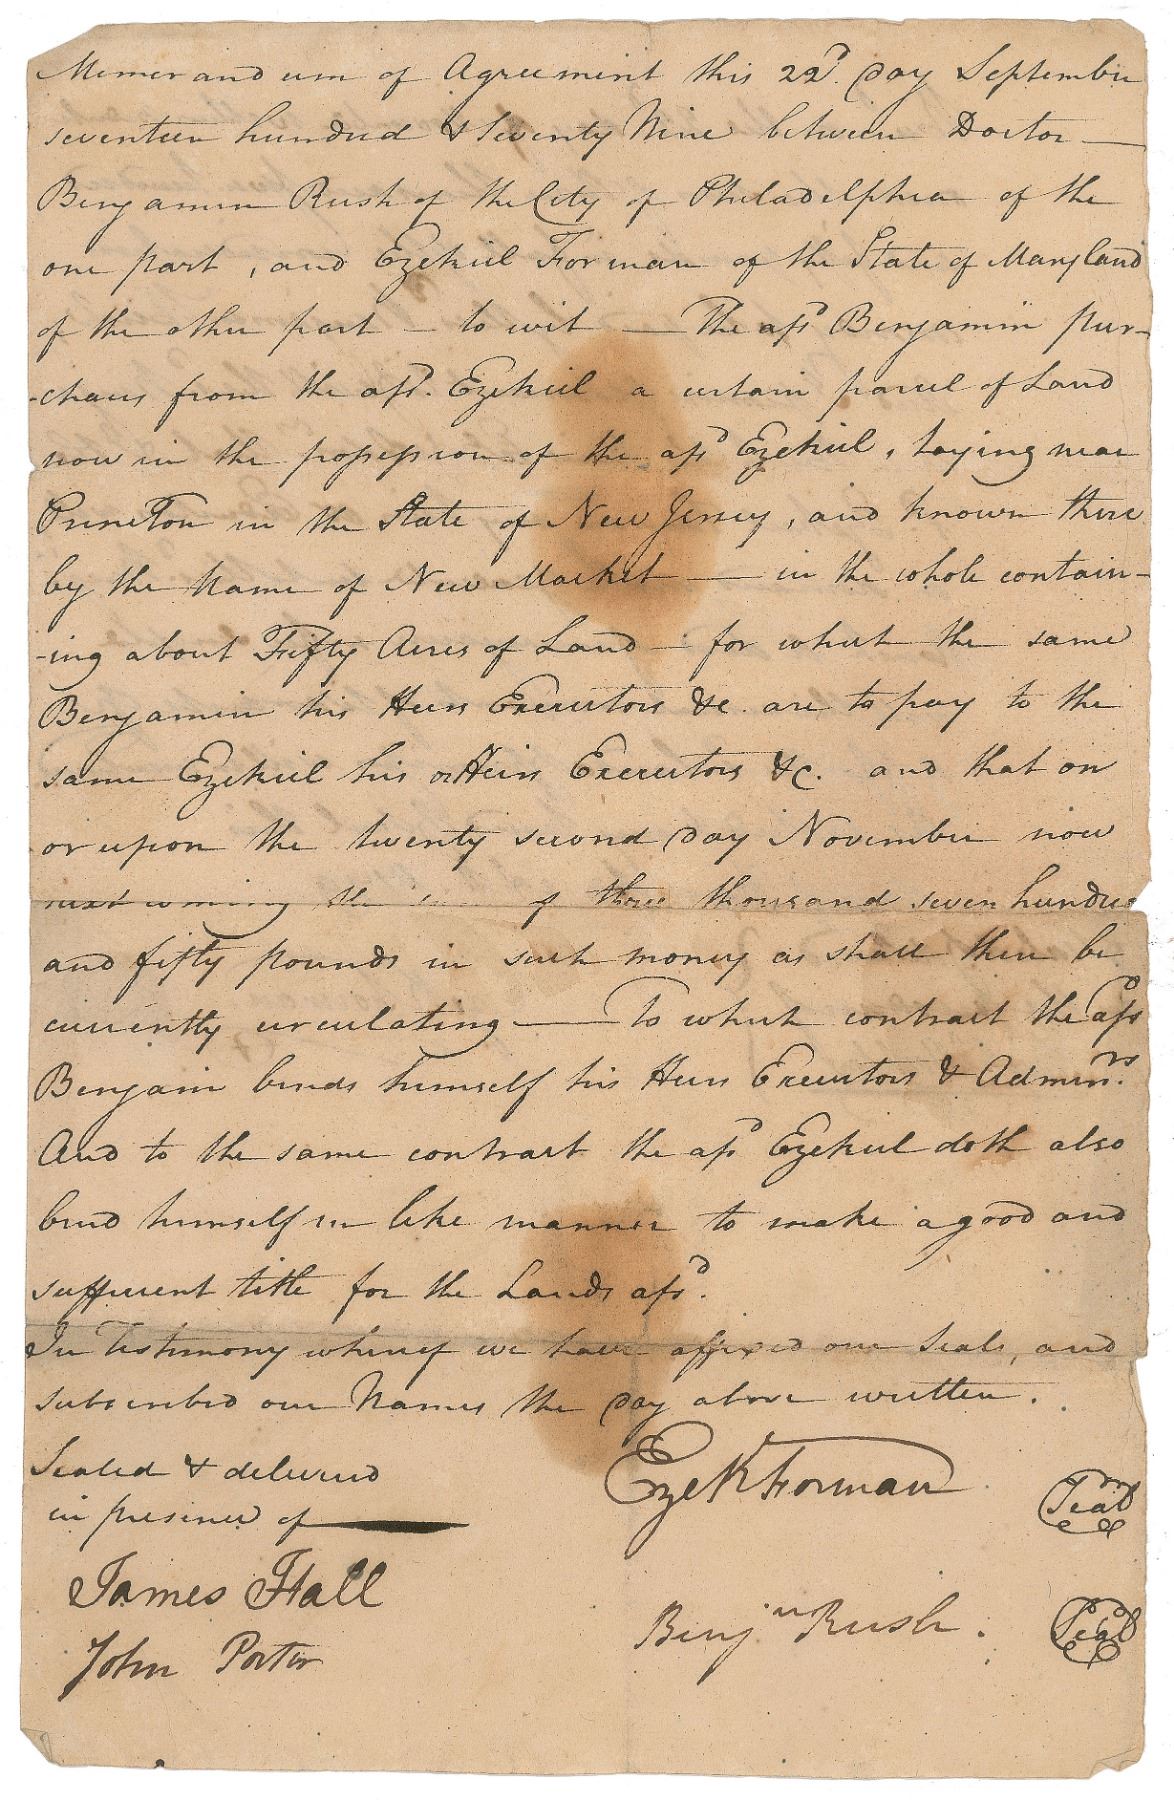 Memorandum of Agreement this 22d. day September
seventeen hundred & Seventy Nine between Doctor —
Benjamin Rush of the City of Philadelphia of the
one part, and Ezekiel Forman of the State of Maryland
of the other part — to wit — The afsd Benjamin pur-
-chases from the afsd. Ezekiel a certain parcel of Land
now in the possession of the afsd Ezekiel, laying near
Princeton in the State of New Jersey, and known there
by the Name of New Market — in the whole contain-
-ing about Fifty Acres of Land — for which the same
Benjamin his Heirs Executors &c. are to pay to the
same Ezekiel his or Heirs Executors &c. and that on
or upon the twenty second day November now
next coming the of three thousand seven hundred
and fifty pounds in such money as shall then be
currently circulating — To which contract the afsd
Benjain binds himself his Heirs Executors & Adminrs.
And to the same contract the afsd Ezekiel doth also
bind himself in like manner to make a good and
sufficient title for the Lands afsd.
In Testimony whereof we have affixed our Seals, and
subscribed our Names the day above written.
Sealed & delivered
in presence of
Ezek Forman Seal
James Hall
Benjn Rush. Seal
John Porter